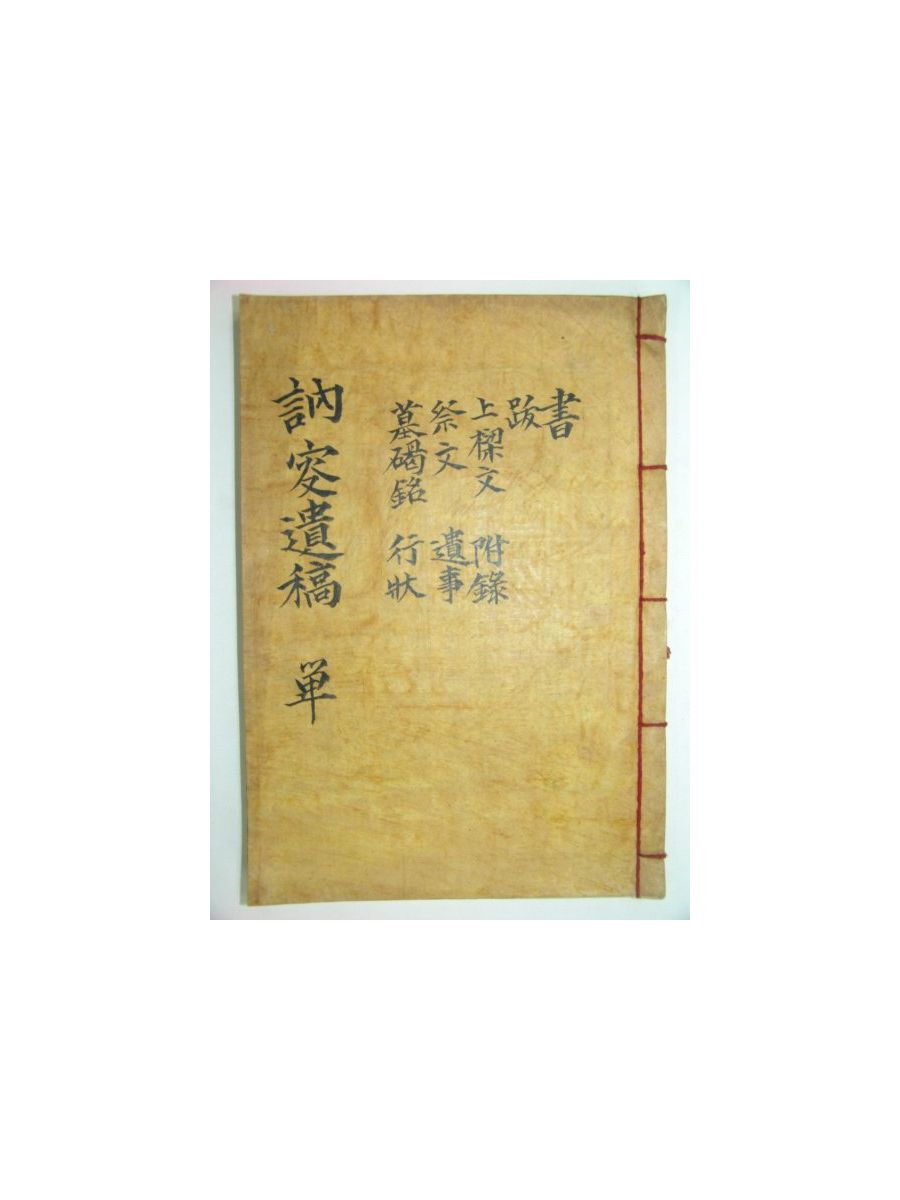 書
跋
上樑文 附錄
祭文 遺事
墓碣銘 行狀
訥叜遺稿 單